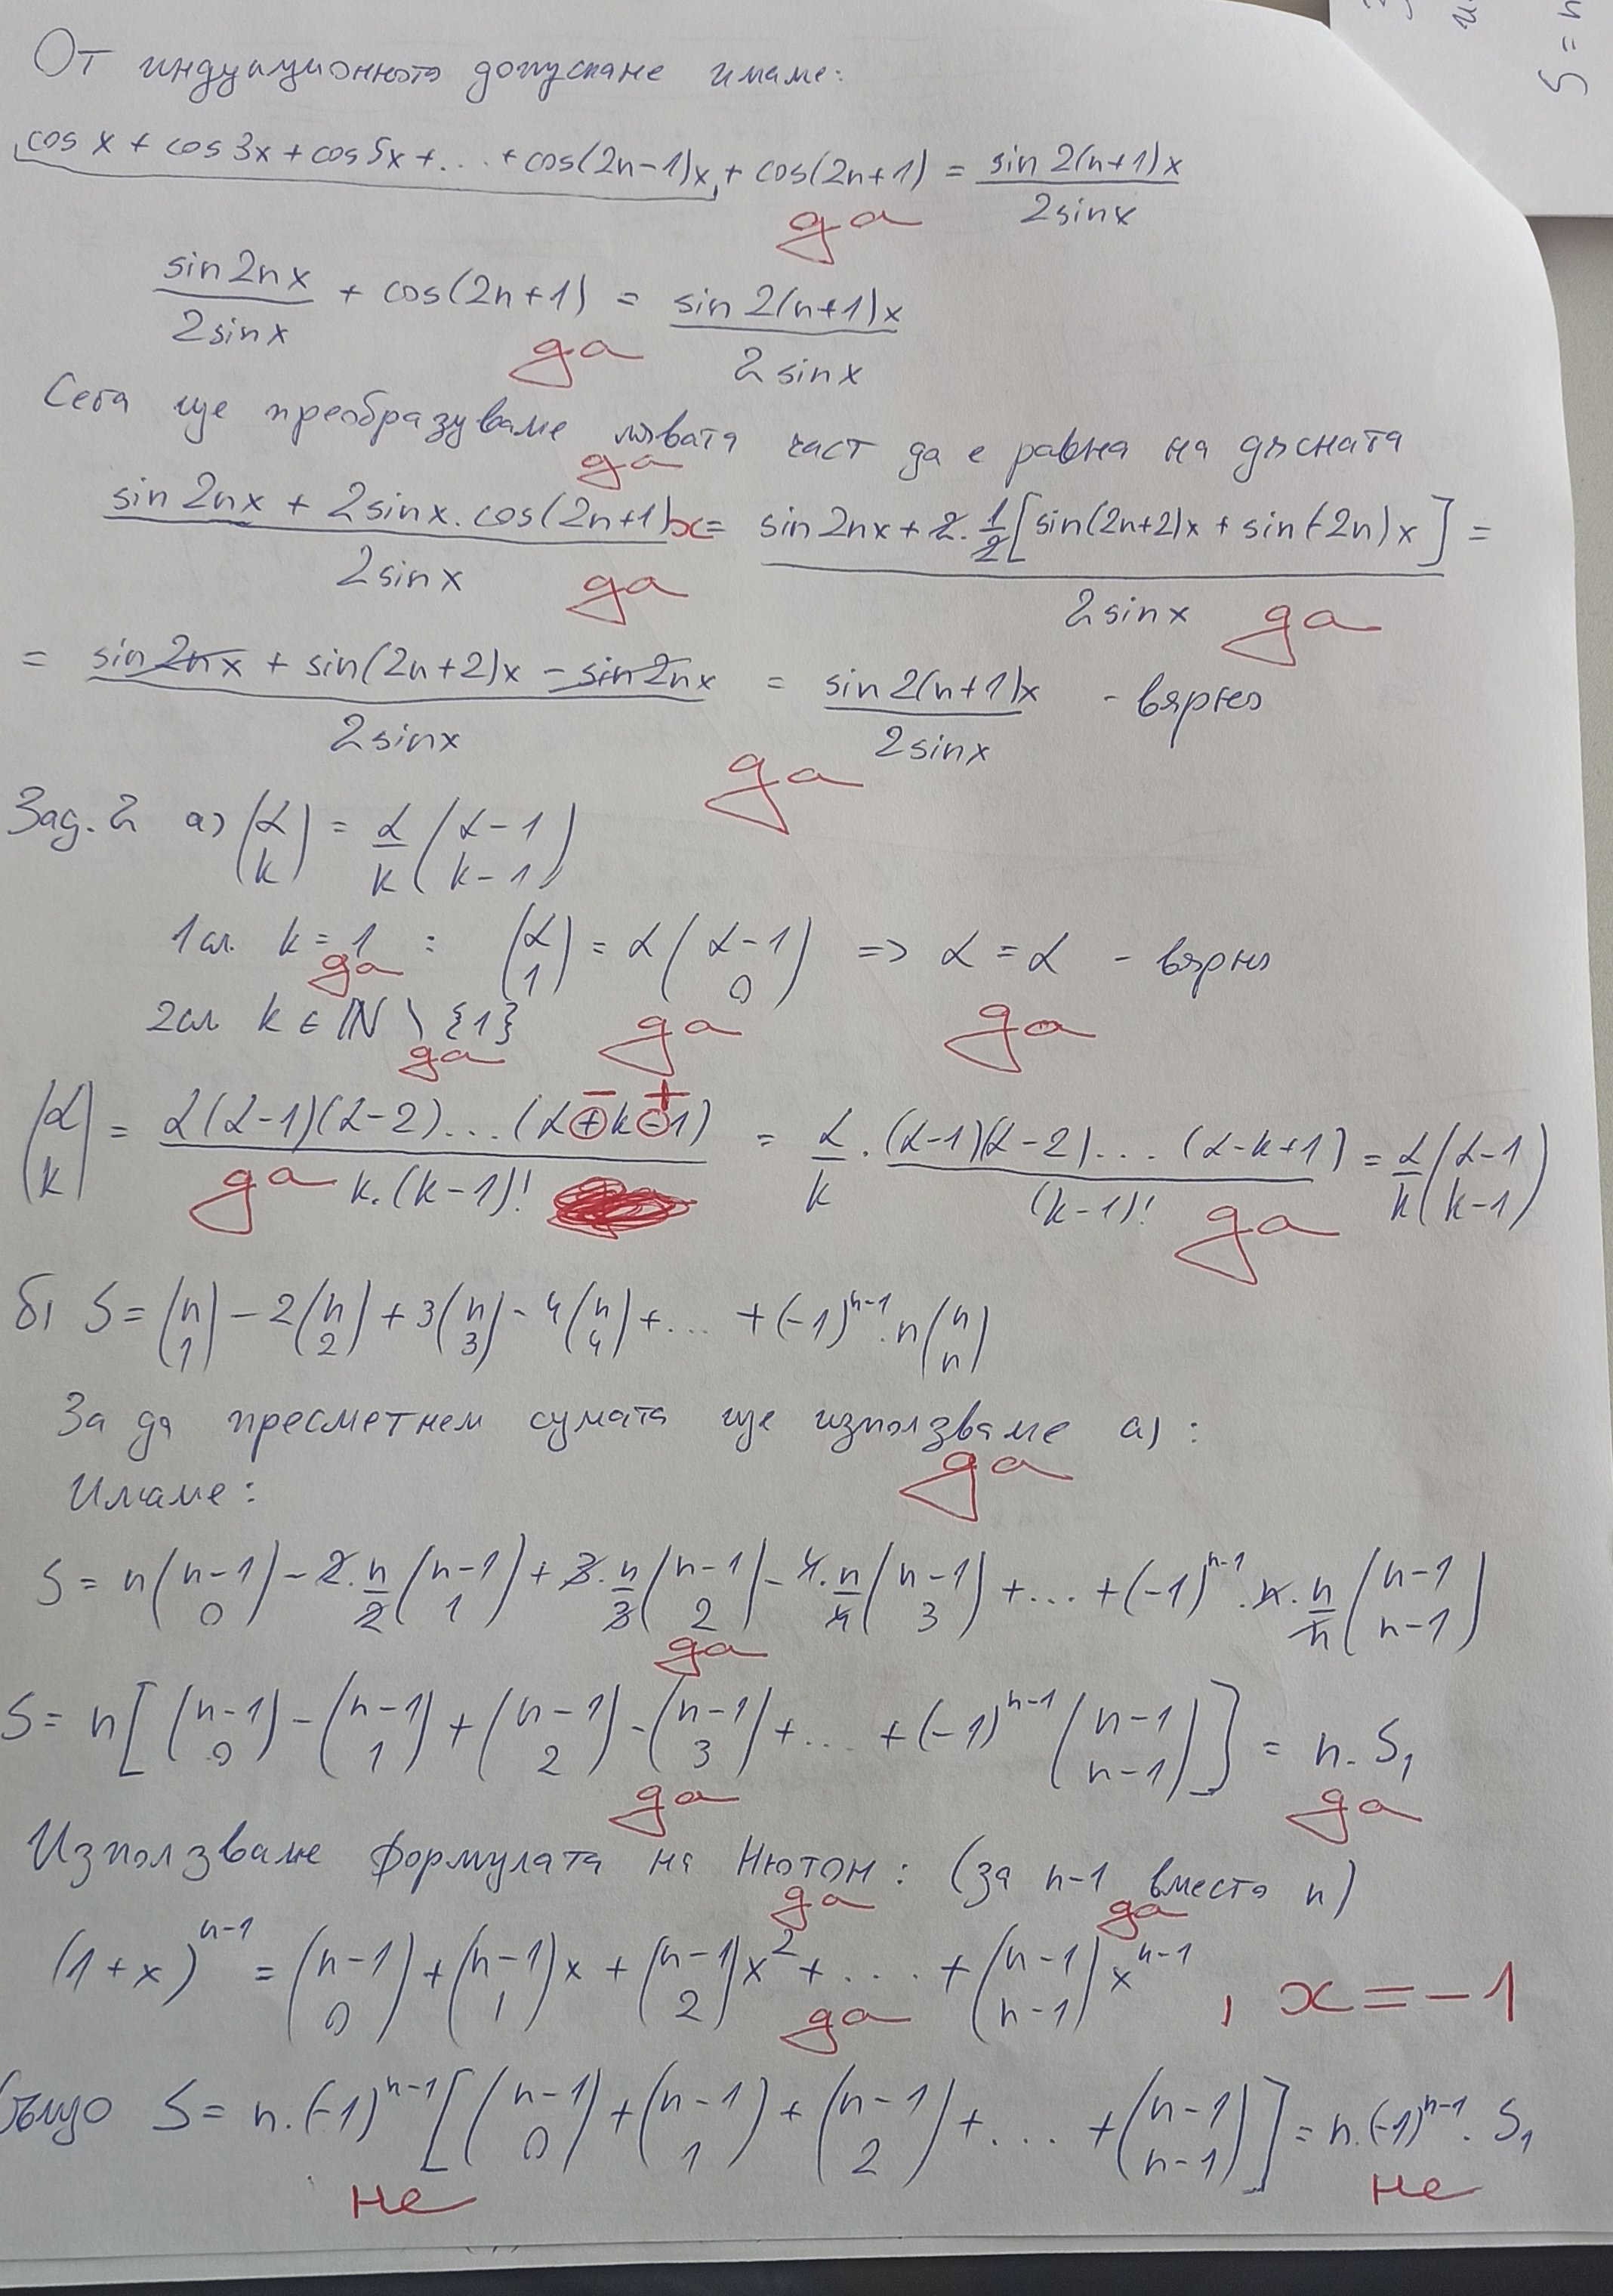 От индукционното допускане имаме:
cos x + cos 3x + cos 5x + ... + cos(2n-1)x + cos(2n+1) = sin 2(n+1)x / 2sinx
да
sin 2nx / 2sinx + cos(2n+1) = sin 2(n+1)x / 2sinx
да
Сега ще преобразуваме лявата част да е равна на дясната
да
(sin 2nx + 2sinx.cos(2n+1)x) / 2sinx = (sin 2nx + 2.1/2[sin(2n+2)x + sin(-2n)x]) / 2sinx =
да да
= (sin 2nx + sin(2n+2)x - sin 2nx) / 2sinx = sin 2(n+1)x / 2sinx - вярно
да
Зад. 2 а) (α k) = α/k (α-1 k-1)
1сл. k = 1 : (α 1) = α(α-1 0) => α = α - вярно
да да да
2сл. k ∈ ℕ \ {1}
да
(α k) = α(α-1)(α-2)...(α+k-1) / k.(k-1)! = α/k . (α-1)(α-2)...(α-k+1) / (k-1)! = α/k (α-1 k-1)
- +
да да
б) S = (n 1) - 2(n 2) + 3(n 3) - 4(n 4) + ... + (-1)^n-1 . n(n n)
За да пресметнем сумата ще използваме а) :
да
Имаме:
S = n(n-1 0) - 2.n/2(n-1 1) + 3.n/3(n-1 2) - 4.n/4(n-1 3) + ... + (-1)^n-1 . n . n/n(n-1 n-1)
да
S = n[(n-1 0) - (n-1 1) + (n-1 2) - (n-1 3) + ... + (-1)^n-1 (n-1 n-1)] = n. S₁
да да
Използваме формулата на Нютон: (за n-1 вместо n)
да да
(1+x)^n-1 = (n-1 0) + (n-1 1)x + (n-1 2)x² + .... + (n-1 n-1)x^n-1 , x = -1
да
S = n.(-1)^n-1[(n-1 0) + (n-1 1) + (n-1 2) + .... + (n-1 n-1)] = n.(-1)^n-1 . S₁
не не